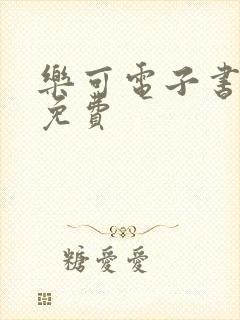 樂可電子書
免費
糖愛愛